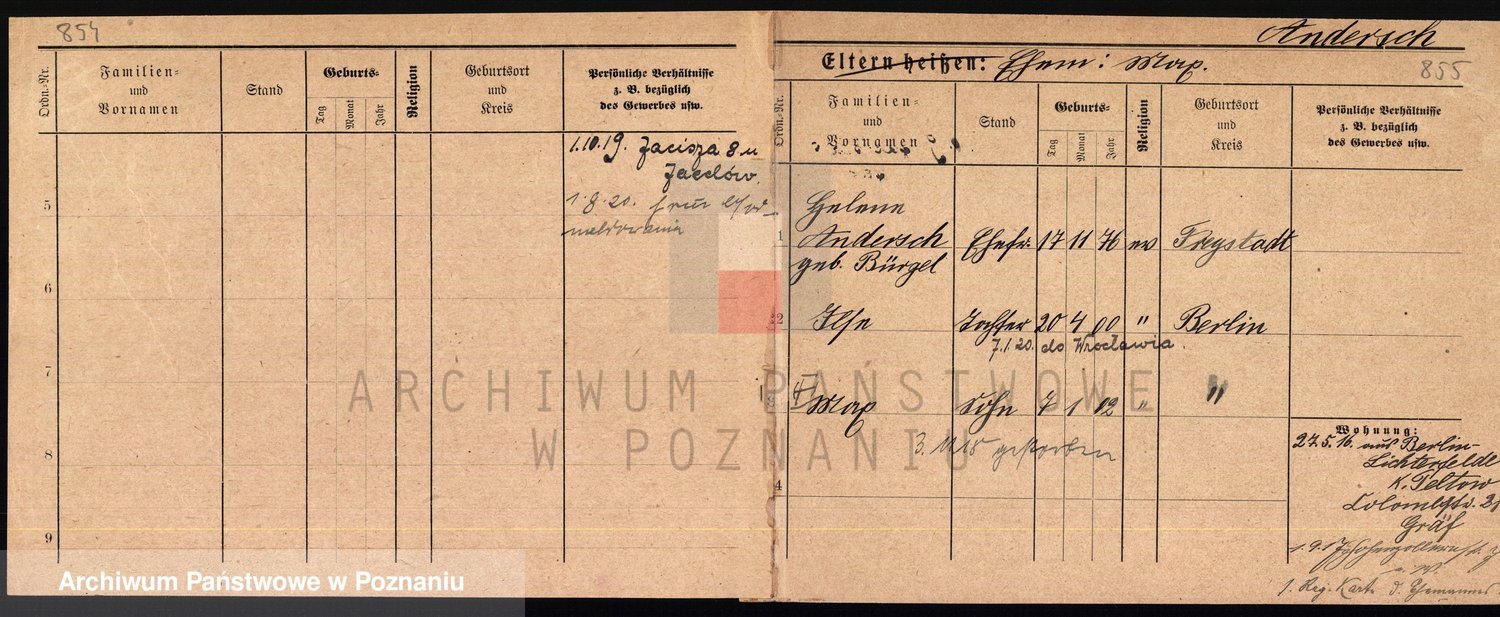 854
Ordn.-Nr.
Familien-
und
Vornamen
Stand
Geburts-
Tag
Monat
Jahr
Religion
Geburtsort
und
Kreis
Persönliche Verhältnisse
z. B. bezüglich
des Gewerbes usw.
1.10.19. Zacisza 8 u
5
1.8.20.
6
7
8
9
Andersch
Eltern heißen: Ehem: Max.
855
Ordn.-Nr.
Familien-
und
Vornamen
Stand
Geburts-
Tag
Monat
Jahr
Religion
Geburtsort
und
Kreis
Persönliche Verhältnisse
z. B. bezüglich
des Gewerbes usw.
Helene
1 Andersch Ehefr. 17 11 76 ev Freystadt
geb. Bürgel
2 Ilse Tochter 20 4 00 " Berlin
7.1.20. do Wrocławia.
† Max Sohn 7 1 02 " "
3. 11 18 gestorben
4
Wohnung:
27.5.16. aus Berlin-
Lichterfelde
K. Teltow
Gräf
1.9.17 Hohenzollernstr.
Reg. Karte d. Ehemannes
ARCHIWUM PAŃSTWOWE
W POZNANIU
Archiwum Państwowe w Poznaniu